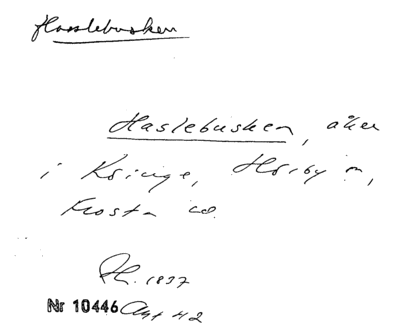 Hasslebusken
Haslebusken, åker
i Kringe, Hörby sn,
Frosta hd.
1837
Nr 10446 Akt 42